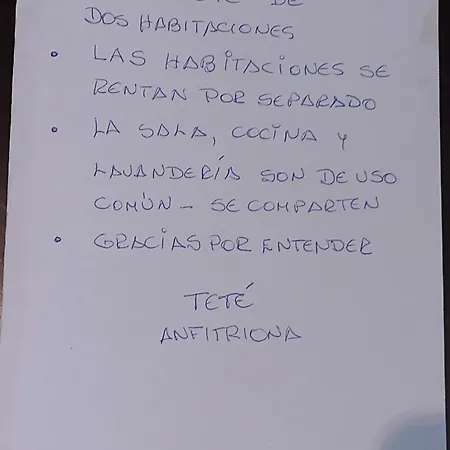 DE
DOS HABITACIONES
• LAS HABITACIONES SE
RENTAN POR SEPARADO
• LA SALA, COCINA Y
LAVANDERÍA SON DE USO
COMÚN - SE COMPARTEN
• GRACIAS POR ENTENDER
TETÉ
ANFITRIONA